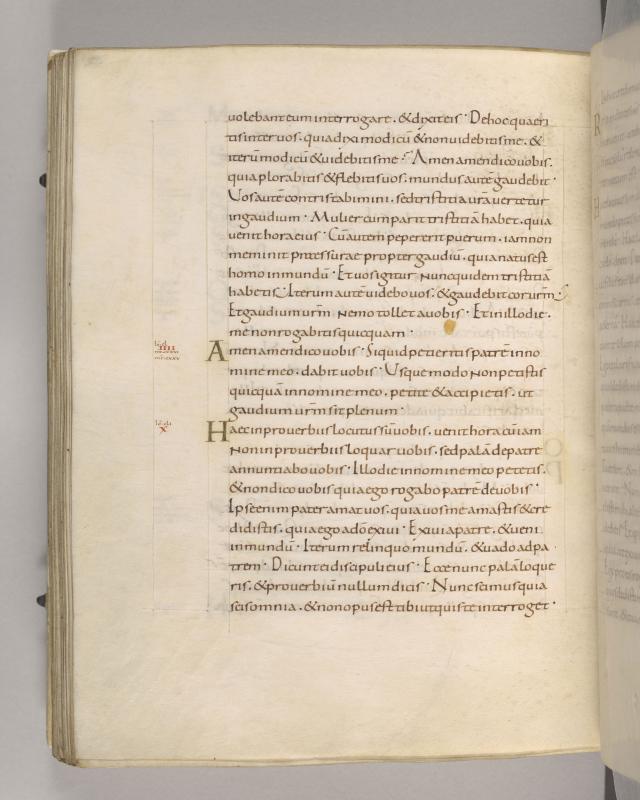 volebant eum interrogare . & dixit eis · De hoc quaeri
tis inter vos . quia dixi modicū & non videbitis me . &
iterū modicū & videbitis me · Amen amen dico vobis .
quia plorabitis & flebitis vos . mundus autē gaudebit ·
Vos autē contristabimini . sed tristitia vr̄a vertetur
in gaudium · Mulier cum parit tristitiā habet . quia
venit hora eius · Cū autem pepererit puerum . iam non
meminit pressurae propter gaudiū . quia natus est
homo in mundū · Et vos igitur nunc quidem tristitiā
habetis · Iterum autē videbo vos . & gaudebit cor vr̄m ·
Et gaudium vr̄m nemo tollet a vobis · Et in illo die .
me non rogabitis quicquam ·
Amen amen dico vobis · Si quid petieritis patrē in no
mine meo . dabit vobis · Usque modo non petistis
quicquā in nomine meo . petite & accipietis . ut
gaudium vr̄m sit plenum ·
Haec in proverbiis locutus sū vobis . venit hora cū iam
non in proverbiis loquar vobis . sed palā de patre
annuntiabo vobis · Illo die in nomine meo petetis .
& non dico vobis quia ego rogabo patrē de vobis ·
Ipse enim pater amat vos . quia vos me amastis & cre
didistis . quia ego a dō exivi · Exivi a patre . & veni
in mundū · Iterum relinquo mundū . & vado ad pa
trem · Dicunt ei discipuli eius · Ecce nunc palā loque
ris . & proverbiū nullum dicis · Nunc scimus quia
scis omnia . & non opus est tibi ut quis te interroget ·
X